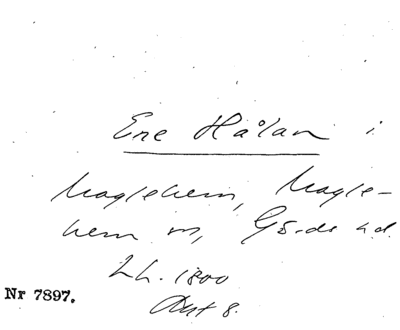 Ene Hålan i
Maglehem, Magle-
hem sn, Gärds hd.
LL. 1800
Akt 8.
Nr 7897.